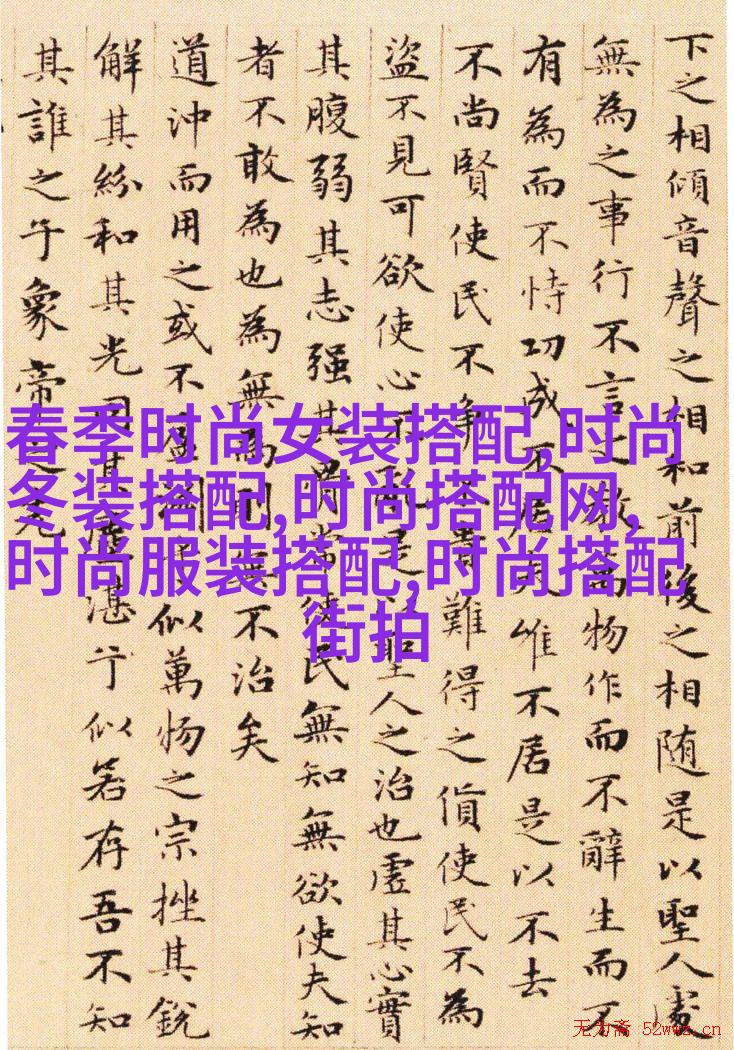 下之相傾音聲之相和前後之相随是以聖人處
無為之事行不言之教萬物作而不辭生而不
有為而不恃功成不居夫惟不居是以不去
不尚賢使民不爭不貴難得之貨使民不為
盜不見可欲使心不亂是以聖人之治也虛其心實
其腹弱其志强其骨常使民無知無欲使夫知
者不敢為也為無為則無不治矣
道沖而用之或不盈淵兮似萬物之宗挫其銳
解其紛和其光同其塵湛兮似若存吾不知
其誰之子象帝之先
春季时尚女装搭配,时尚
冬装搭配,时尚搭配网,
时尚服装搭配,时尚搭配
街拍
无为斋 52wwz.cn